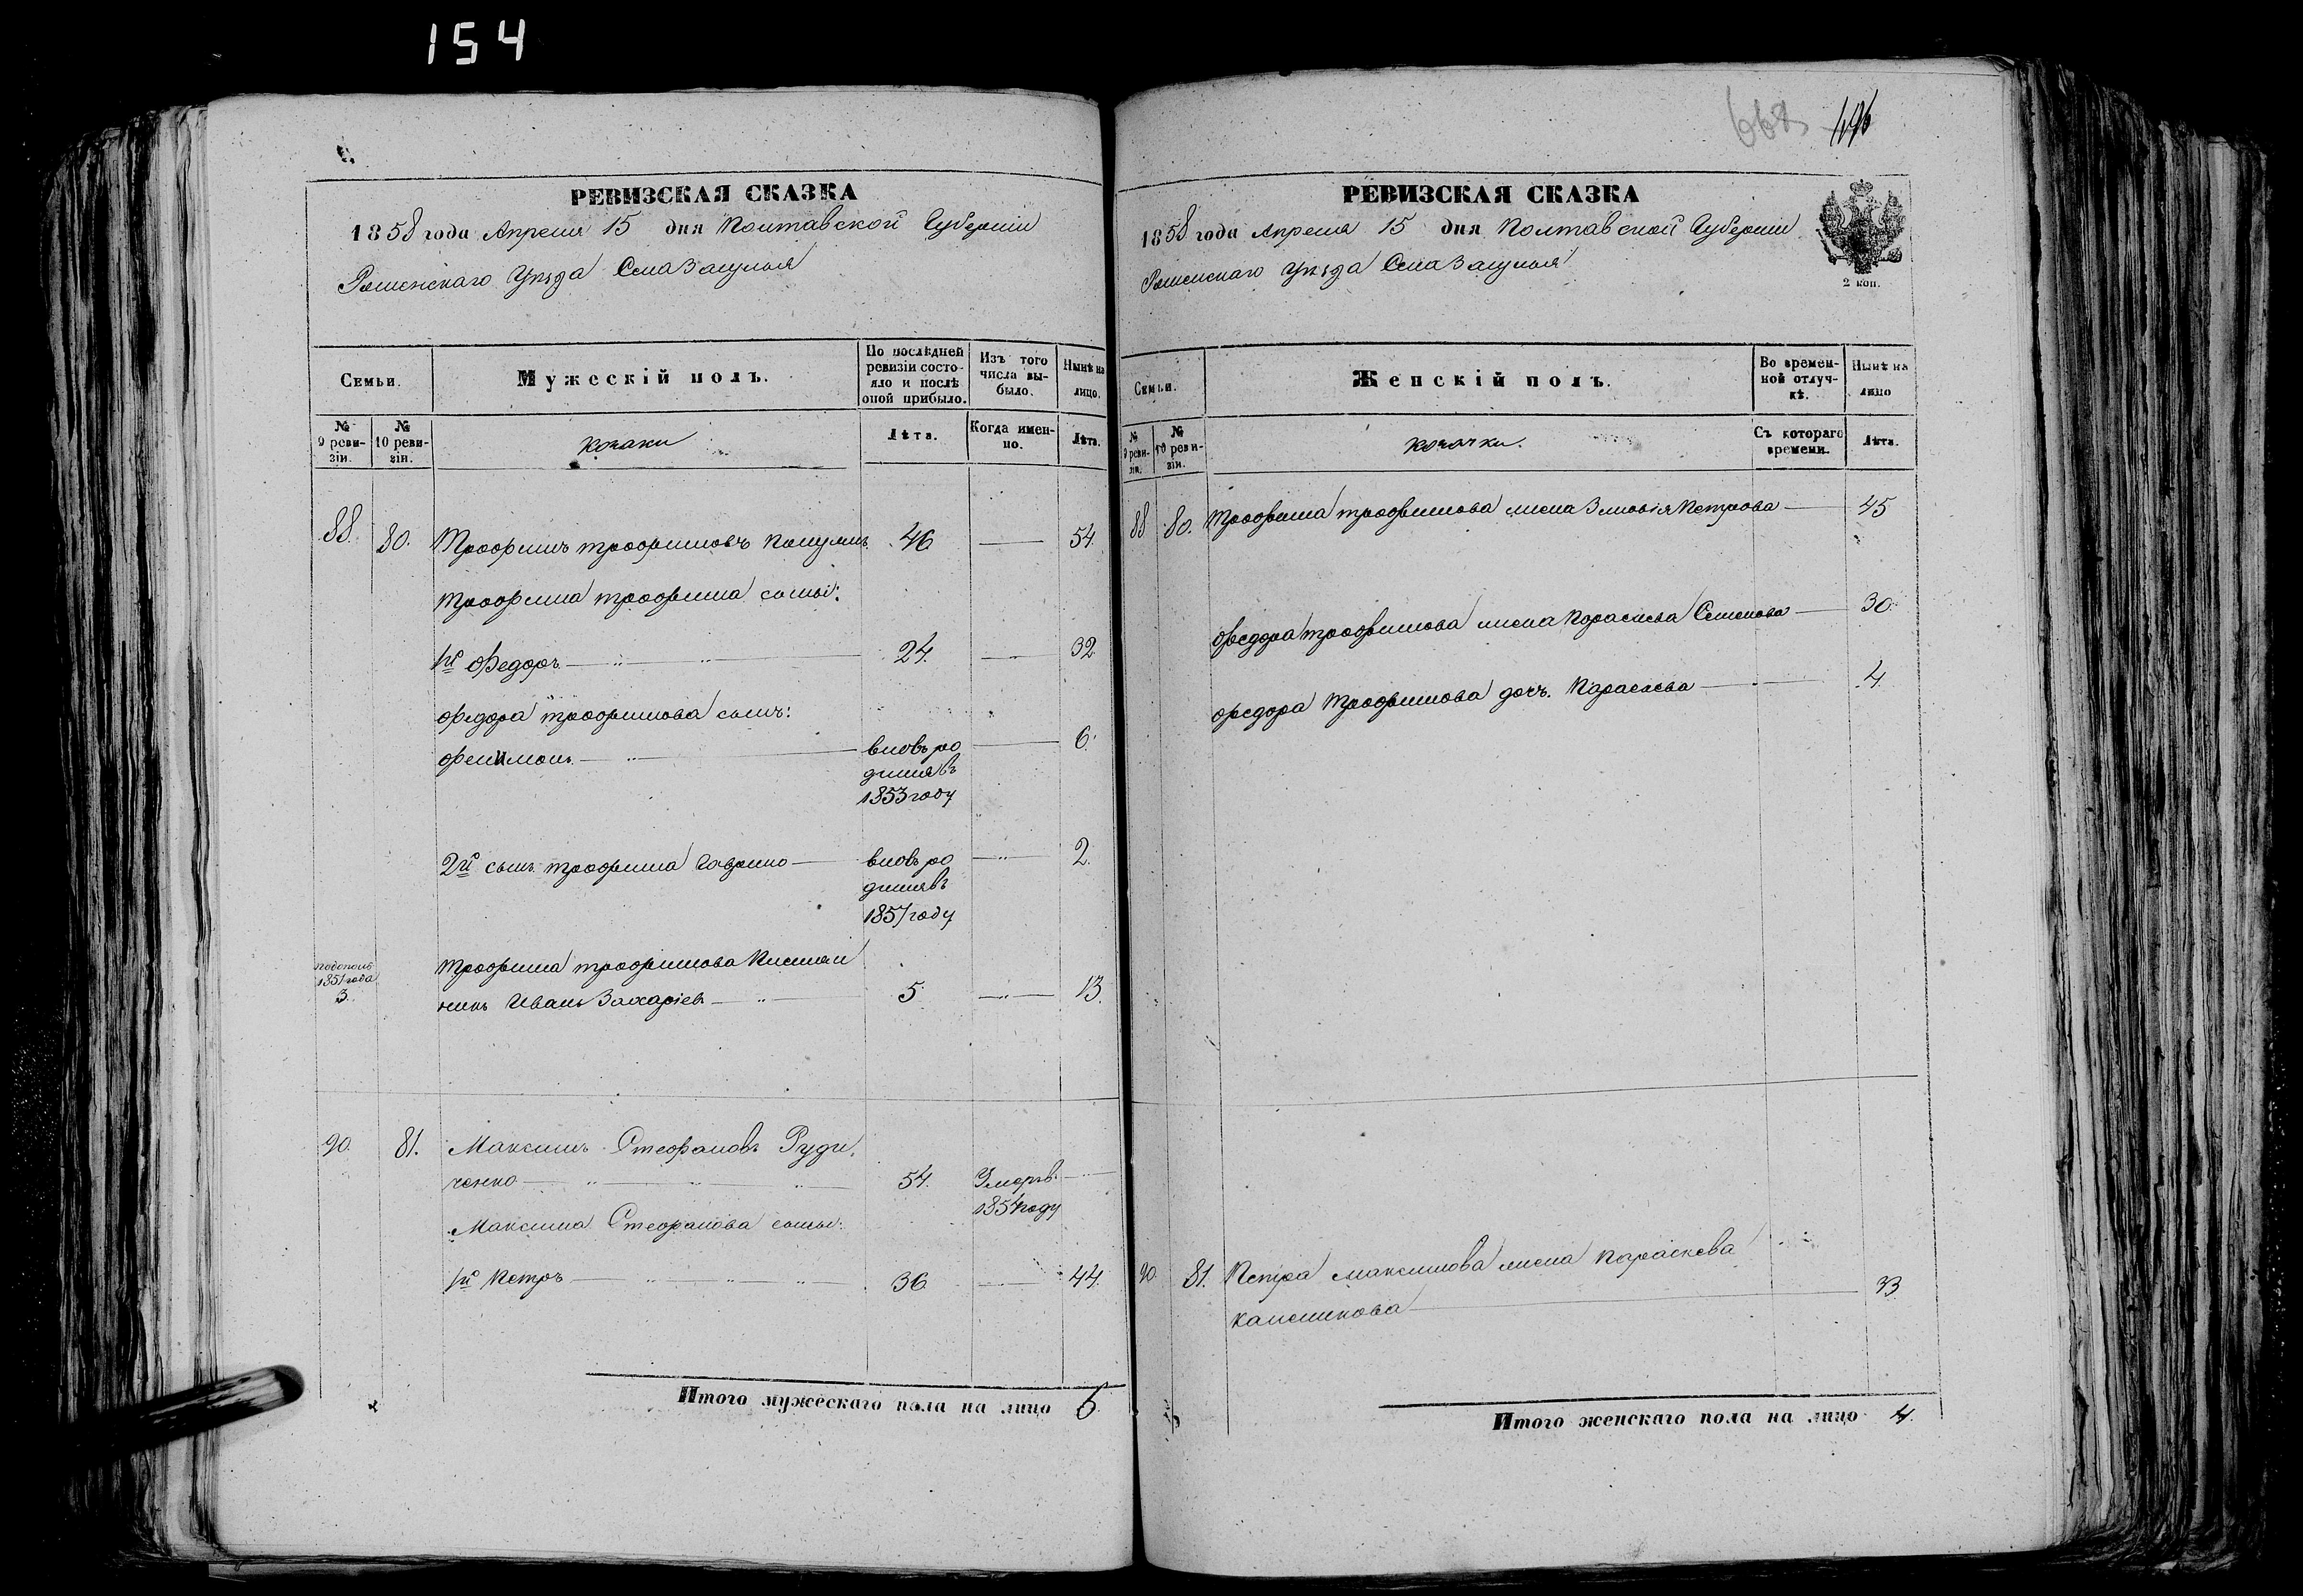 154
668 496
РЕВИЗСКАЯ СКАЗКА
1858 года Апреля 15 дня Полтавской Губерніи
Роменскаго Уѣзда Села Засулья
Семьи.
Мужескій полъ.
По послѣдней ревизіи состояло и послѣ оной прибыло.
Изъ того числа выбыло.
Нынѣ на лицо.
№ 9 ревизіи.
№ 10 ревизіи.
Козаки
Лѣта.
Когда именно.
Лѣта.
88. 80. Трофимъ Трофимовъ 46 54.
Трофима Трофима сыны:
1й Федоръ 24. 32
Федора Трофимова сынъ:
Филимонъ вновь ро 6.
дился въ
1853 году
2й сынъ Трофима Гаврило вновь ро 2.
дился въ
1857 году
1851 года
3.
Трофима Трофимова племян
никъ Иванъ Захаріевъ 5 13.
90. 81. Максимъ Стефановъ Руди
ченко 54. Умеръ в.
1854 году
Максима Стефанова сыны:
1й Петръ 36 44.
Итого мужескаго пола на лицо 6.
РЕВИЗСКАЯ СКАЗКА
1858 года Апреля 15 дня Полтавской Губерніи
Роменскаго Уѣзда Села Засулья
2 коп.
Семьи.
Женскій полъ.
Во временной отлучкѣ.
Нынѣ на лицо
№ 9 ревизіи.
№ 10 ревизіи.
Козачки.
Съ котораго времени.
Лѣта.
88 80. Трофима Трофимова жена Зиновія Петрова 45
Федора Трофимова жена Параскева Семенова 30
Федора Трофимова дочь Параскева 4.
90. 81. Петра Максимова жена Параскева
33.
Итого женскаго пола на лицо 4.